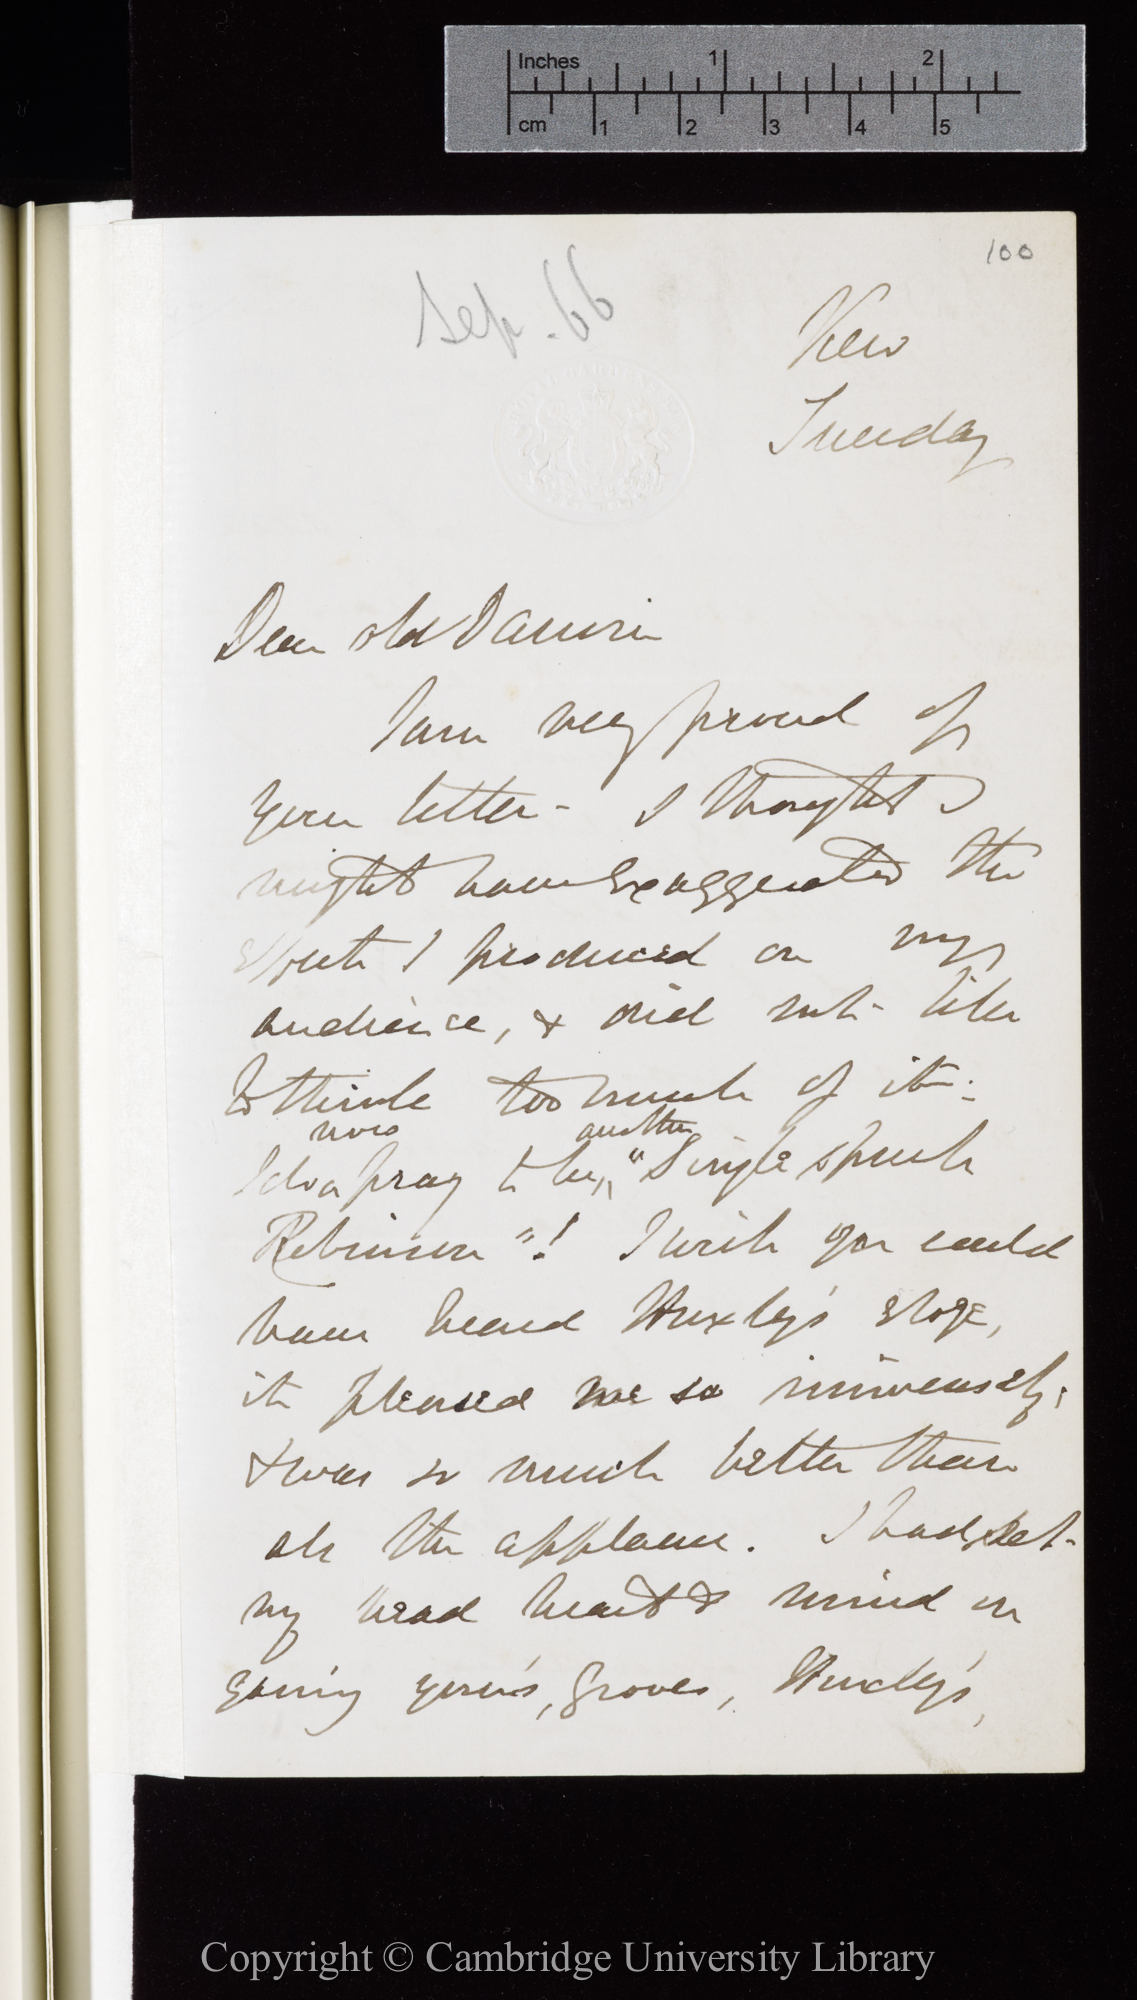 Inches 1 2
cm 1 2 3 4 5
100
Sep. 66
Kew
Tuesday
Dear old Darwin
I am very proud of
your letter - I thought I
might have exaggerated the
effect I produced on my
audience, & did not like
to think too much of it:
now another
I do pray to be "Single speech
Robinson"! I wish you could
have heard Huxley's eloge,
it pleased me so immensely,
& was so much better than
all the applause. I had set
my head heart & mind on
your's, Groves, Huxley's,
Copyright © Cambridge University Library